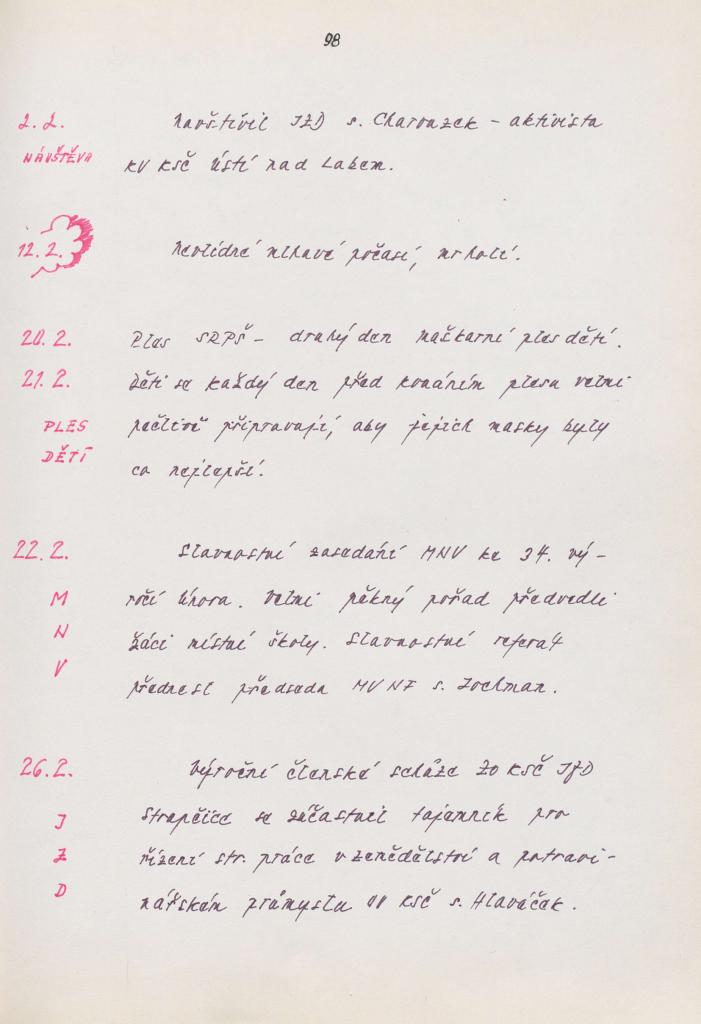 98
2. 2. Navštívil JZD s. Charouzek - aktivista
NÁVŠTĚVA KV KSČ Ústí nad Labem.
12. 2. Nevlídné mlhavé počasí, mrholí.
20. 2. Ples SRPŠ - druhý den maškarní ples dětí.
21. 2. Děti se každý den před konáním plesu velmi
PLES pečlivě připravají, aby jejich masky byly
DĚTÍ co nejlepší.
22. 2. Slavnostní zasedání MNV ke 34. vý-
M ročí Února. Velmi pěkný pořad předvedli
N žáci místní školy. Slavnostní referát
V přednesl předseda MV NF s. Zochman.
26. 2. Výroční členské schůze ZO KSČ JZD
J se zúčastnil tajemník pro
Z řízení str. práce v zemědělství a potravi-
D nářském průmyslu OV KSČ s. Hlaváček.